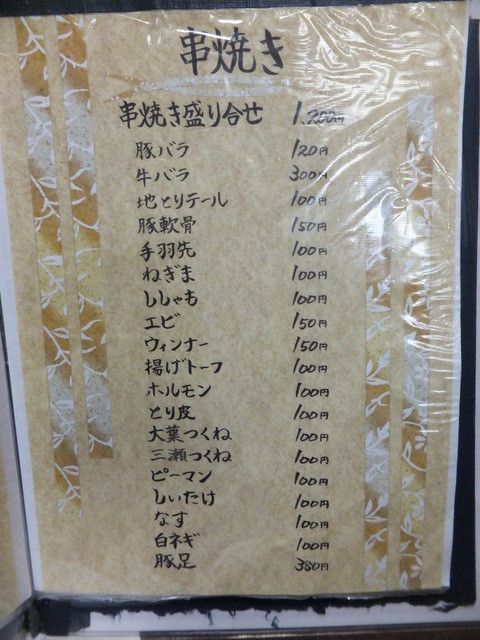 串焼き
串焼き盛り合せ 1.200円
豚バラ 120円
牛バラ 300円
地とりテール 100円
豚軟骨 150円
手羽先 100円
ねぎま 100円
ししゃも 100円
エビ 150円
ウィンナー 150円
揚げトーフ 100円
ホルモン 100円
とり皮 100円
大葉つくね 100円
三瀬つくね 100円
ピーマン 100円
しいたけ 100円
なす 100円
白ネギ 100円
豚足 380円